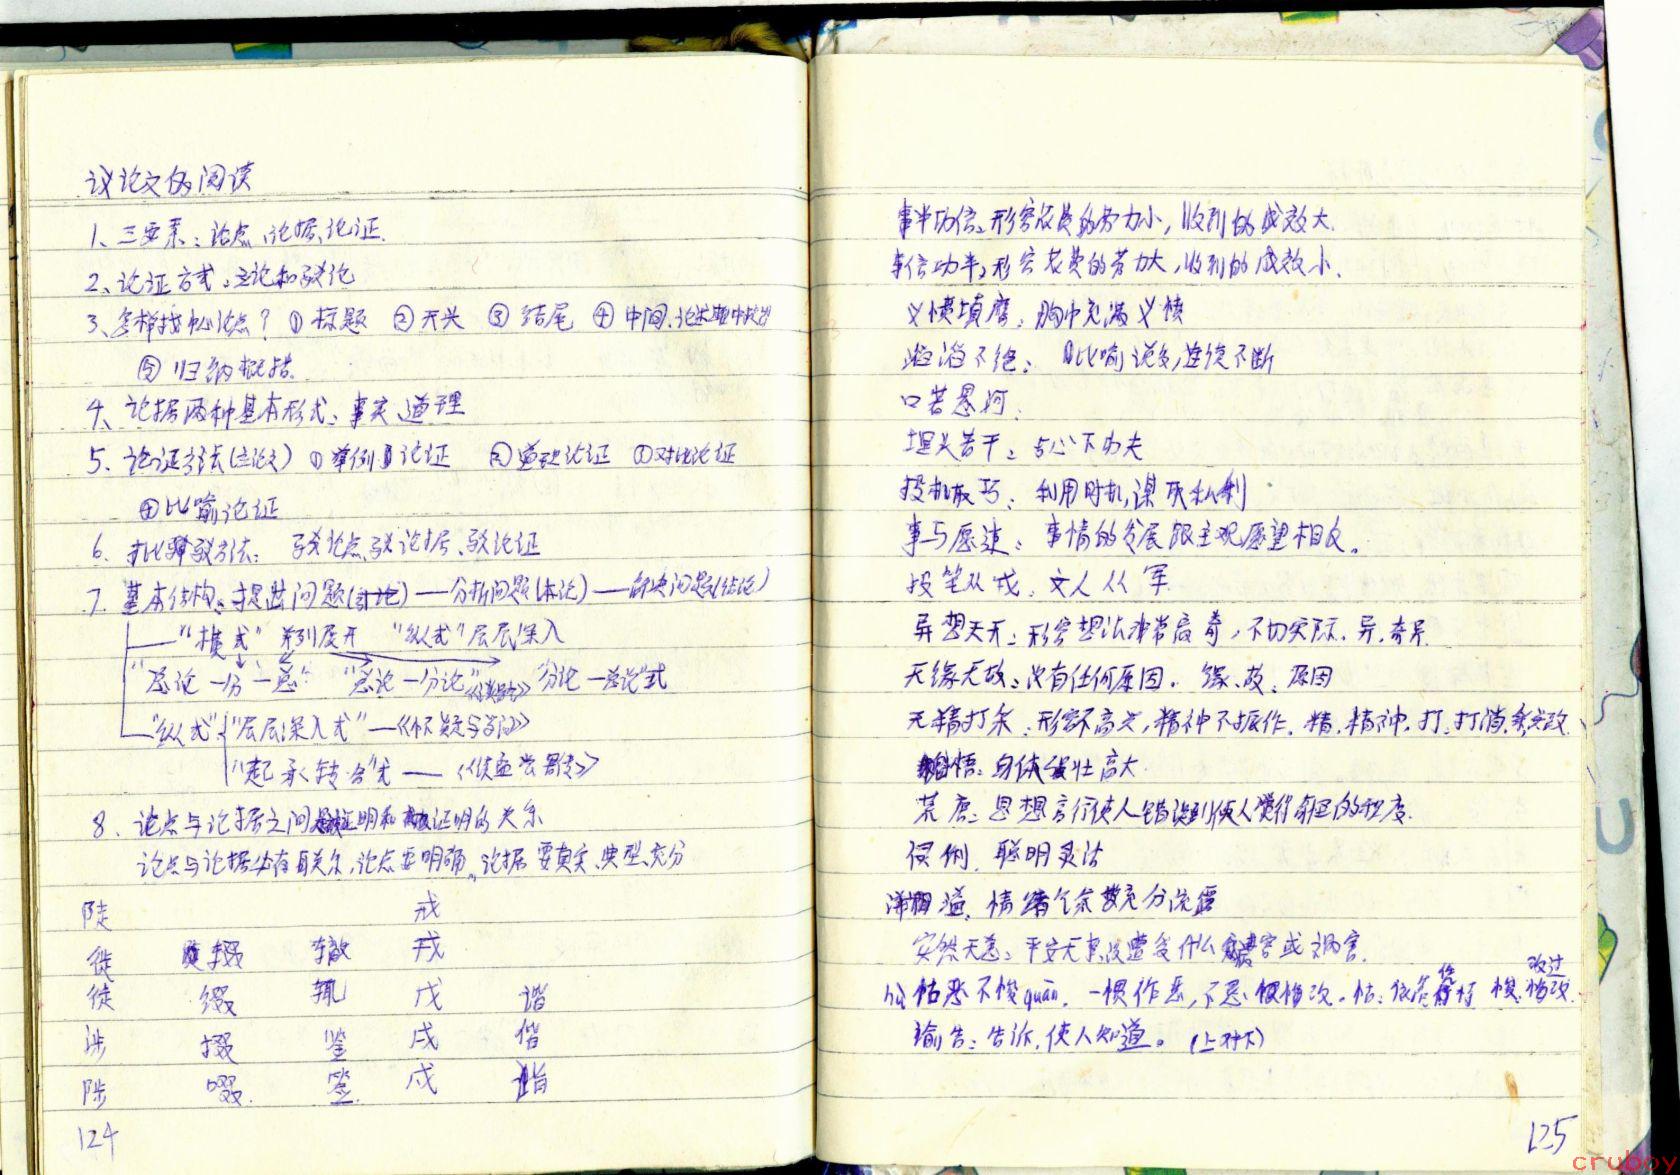 议论文的阅读
1、三要素：论点、论据、论证.
2、论证方式：立论和驳论
3、怎样找中心论点？ ① 标题 ② 开头 ③ 结尾 ④ 中间、论述
⑤ 归纳概括.
4、论据两种基本形式：事实、道理
5、论证方法(立论文) ① 举例论证 ② 道理论证 ③对比论证
④比喻论证
6、驳方法： 驳论点、驳论据、驳论证
7、基本结构：提出问题(引论)——分析问题(本论)——解决问题(结论)
"横式" 并列展开 "纵式"层层深入
"总论—分—总" "总论—分论" 分论—总论"式
"纵式" "层层深入式"—《怀疑与学问》
"起承转合"式 ——
8、论点与论据之间是证明和被证明的关系
论点与论据必有关系,论点要明确、论据要真实、典型、充分
陡 戒
徒 辍 辙 戎
徙 缀 辄 戊 谐
涉 掇 鉴 戌 偕
陟 啜. 签 戍 诣
124
事半功倍：形容花费的劳力小，收到的成效大.
事倍功半：形容花费的劳力大，收到的成效小.
义愤填膺：胸中充满义愤
滔滔不绝： 比喻话多,连续不断
口若悬河.
埋头苦干：专心下功夫
投机取巧： 利用时机,谋取私利
事与愿违： 事情的发展跟主观愿望相反。
投笔从戎： 文人从军.
异想天开：形容想法非常离奇，不切实际. 异.奇异.
无缘无故：没有任何原因. 缘、故：原因
无精打采：形容不高兴,精神不振作. 精.精神. 打：打消.
魁梧：身体强壮高大.
荒唐：思想言行使人觉得奇怪的程度.
伶俐. 聪明灵活
洋溢. 情绪气氛等充分流露
安然无恙：平安无事,没遭受什么灾害或祸害.
怙恶不悛quān. 一惯作恶,不思悔改. 怙：依靠 悛. 悔改. 改过
谕告：告诉,使人知道。 (上对下)
125
cruboy